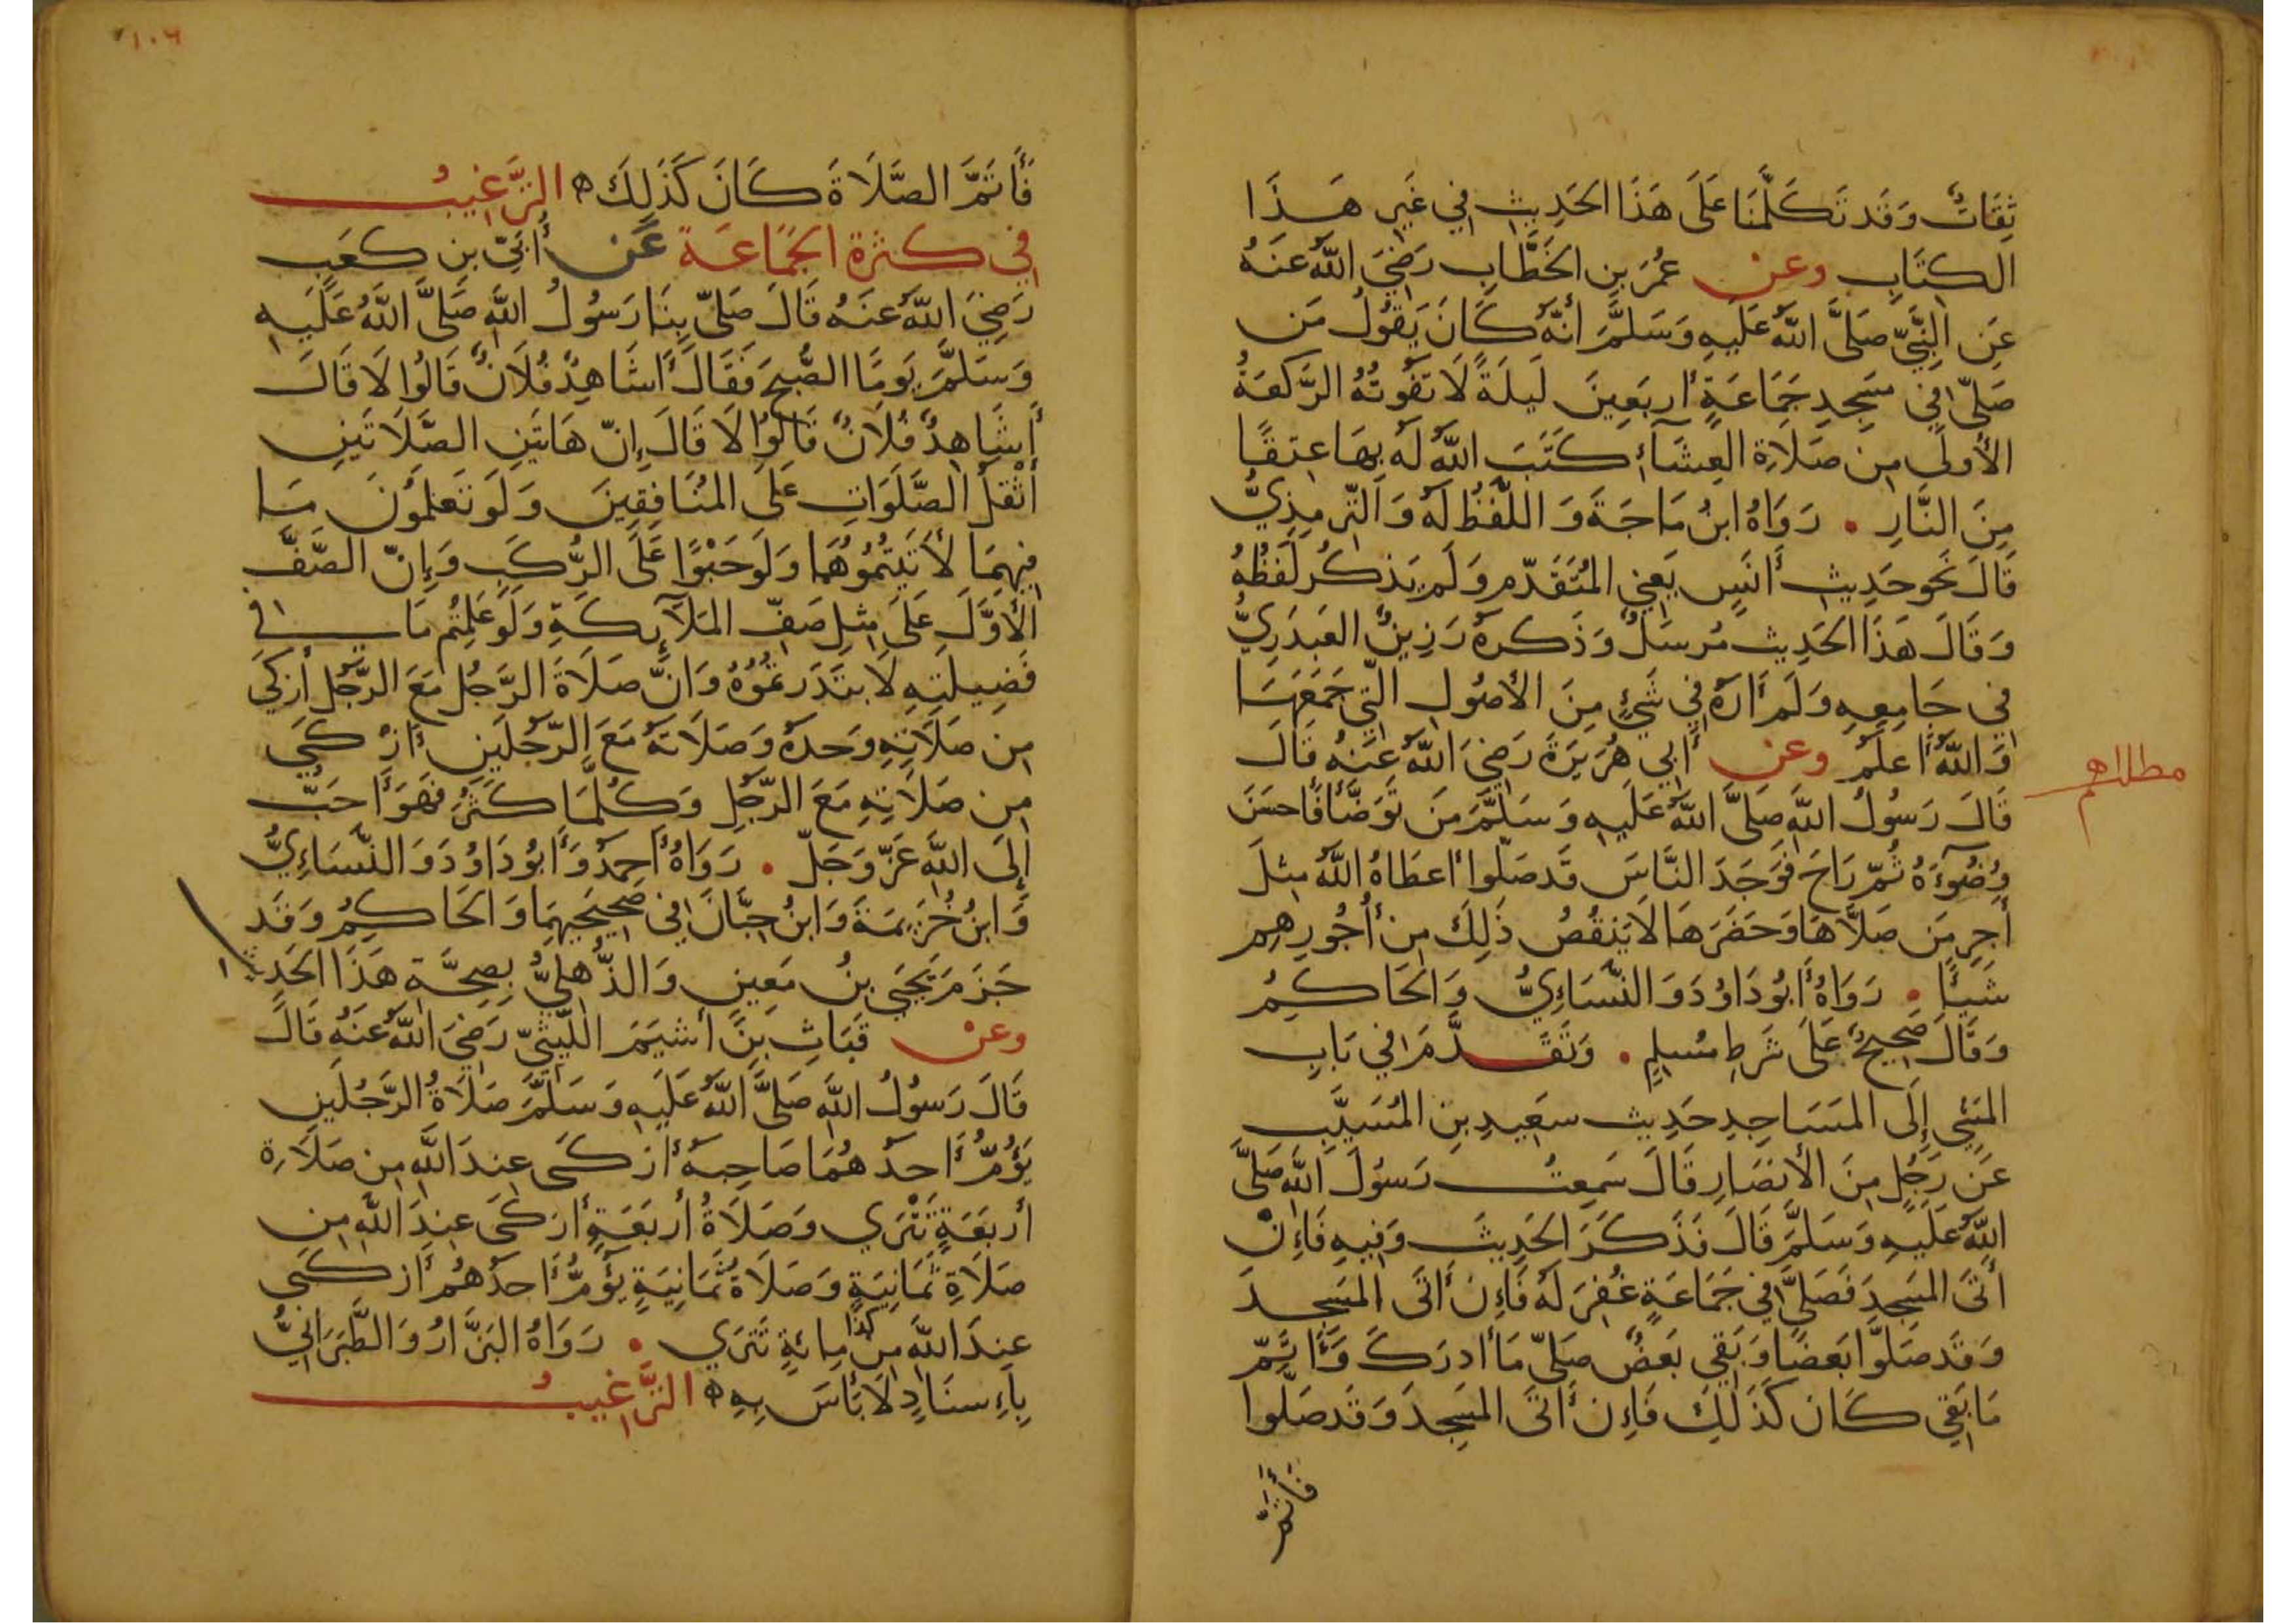 ثِقَاتٌ وَقَد تَكَلَّمنَا عَلَى هَذَا الحَدِيثِ فِي غَيرِ هَذَا
الكِتَابِ وعن عُمَرَ بنِ الخَطَّابِ رَضِيَ اللَّهُ عَنهُ
عَنِ النَّبِيِّ صَلَّى اللَّهُ عَلَيهِ وَسَلَّمَ أَنَّهُ كَانَ يَقُولُ مَن
صَلَّى فِي مَسجِدِ جَمَاعَةٍ أَربَعِينَ لَيلَةً لَا تَفُوتُهُ الرَّكعَةُ
الأُولَى مِن صَلَاةِ العِشَاءِ كَتَبَ اللَّهُ لَهُ بِهَا عِتقًا
مِنَ النَّارِ . رَوَاهُ ابنُ مَاجَةَ وَاللَّفظُ لَهُ وَالتِّرمِذِيُّ
قَالَ نَحوَ حَدِيثِ أَنَسٍ يَعنِي المُتَقَدِّمِ وَلَم يَذكُر لَفظَهُ
وَقَالَ هَذَا الحَدِيث مُرسَلٌ وَذَكَرَهُ رَزِينٌ العَبدَرِيُّ
فِي جَامِعِهِ وَلَم أَرَهُ فِي شَيْءٍ مِنَ الأُصُولِ الَّتِي جَمَعَهَا
وَاللَّهُ أَعلَمُ وعن أَبِي هُرَيرَةَ رَضِيَ اللَّهُ عَنهُ قَالَ
قَالَ رَسُولُ اللَّهِ صَلَّى اللَّهُ عَلَيهِ وَسَلَّمَ مَن تَوَضَّأَ فَأَحسَنَ
وُضُوءَهُ ثُمَّ رَاحَ فَوَجَدَ النَّاسَ قَد صَلَّوا أَعطَاهُ اللَّهُ مِثلَ
أَجرِ مَن صَلَّاهَا وَحَضَرَهَا لَا يَنقُصُ ذَلِكَ مِن أُجُورِهِم
شَيئًا . رَوَاهُ أَبُو دَاوُدَ وَالنَّسَاءِيُّ وَالحَاكِمُ
وَقَالَ صَحِيحٌ عَلَى شَرطِ مُسلِمٍ . وَتَقَدَّمَ فِي بَابِ
المَشيِ إِلَى المَسَاجِدِ حَدِيث سَعِيدِ بنِ المُسَيَّبِ
عَن رَجُلٍ مِنَ الأَنصَارِ قَالَ سَمِعتُ رَسُولَ اللَّهِ صَلَّى
اللَّهُ عَلَيهِ وَسَلَّمَ قَالَ فَذَكَرَ الحَدِيثَ وَفِيهِ فَإِنْ
أَتَى المَسجِدَ فَصَلَّى فِي جَمَاعَةٍ غُفِرَ لَهُ فَإِن أَتَى المَسجِدَ
وَقَد صَلَّوا بَعضًا وَبَقِيَ بَعضٌ صَلَّى مَا أَدرَكَ وَأَتَمَّ
مَا بَقِيَ كَانَ كَذَلِكَ فَإِن أَتَى المَسجِدَ وَقَد صَلَّوا
فَأَتَمَّ
١٠٦
فَأَتَمَّ الصَّلَاةَ كَانَ كَذَلِكَ ه التَّرغِيبُ
فِي كَثرَةِ الجَمَاعَة عَن أُبَيِّ بنِ كَعَبٍ
رَضِيَ اللَّهُ عَنهُ قَالَ صَلَّى بِنَا رَسُولُ اللَّهِ صَلَّى اللَّهُ عَلَيهِ
وَسَلَّمَ يَومًا الصُّبحَ فَقَالَ أَشَاهِدٌ فُلَانٌ قَالُوا لَا قَالَ
أَشَاهِدٌ فُلَانٌ قَالُوا لَا قَالَ إِنّ هَاتَينِ الصَّلَاتَينِ
أَثْقَلُ الصَّلَوَاتِ عَلَى المُنَافِقِينَ وَلَو تَعلَمُونَ مَا
فِيهِمَا لأَتَيتُمُوهُمَا وَلَو حَبْوًا عَلَى الرُّكَبِ وَإِنّ الصَّفَّ
الأَوَّلَ عَلَى مِثلِ صَفِّ المَلَآئِكَةِ وَلَو عَلِمتُم مَا فِي
فَضِيلَتِهِ لَابتَدَرتُمُوهُ وَانَّ صَلَاةَ الرَّجُلِ مَعَ الرَّجُلِ أَزكَى
مِن صَلَاتِهِ وَحدَهُ وَصَلَاتَهُ مَعَ الرَّجُلَينِ أَزكَى
مِن صَلَاتِهِ مَعَ الرَّجُلِ وَكُلَّمَا كَثُرَ فَهُوَ أَحَبُّ
إِلَى اللَّهِ عَزَّ وَجَلَّ . رَوَاهُ أَحمَدُ وَأَبُو دَاوُدَ وَالنَّسَاءِيُّ
وَابنُ خُزَيمَةَ وَابنُ حِبَّانَ فِي صَحِيحَيهِمَا وَالحَاكِمُ وَقَد
جَزَمَ يَحيَى بنُ مَعِينٍ وَالذُّهلِيُّ بِصِحَّةِ هَذَا الحَدِيثِ
وعن قَبَاثِ بنِ أَشيَمَ اللَّيثِيِّ رَضِيَ اللَّهُ عَنهُ قَالَ
قَالَ رَسُولُ اللَّهِ صَلَّى اللَّهُ عَلَيهِ وَسَلَّمَ صَلَاةُ الرَّجُلَينِ
يَؤُمُّ أَحدُهُمَا صَاحِبَهُ أَزكَى عِندَ اللَّهِ مِن صَلَاةِ
أَربَعَةٍ تَتْرَي وَصَلَاةُ أَربَعَةٍ أَزكَى عِندَ اللَّهِ مِن
صَلَاةِ ثَمَانِيَةٍ وَصَلَاةُ ثَمَانِيَةٍ يَؤُمُّ أَحدُهُم أَزكَى
عِندَ اللَّهِ مِن كذا مِائَةٍ تَترَي . رَوَاهُ البَزَّارُ وَالطَّبَرَانِيُّ
بِإِسنَادٍ لَا بَأسَ بِهِ ه التَّرغِيبُ